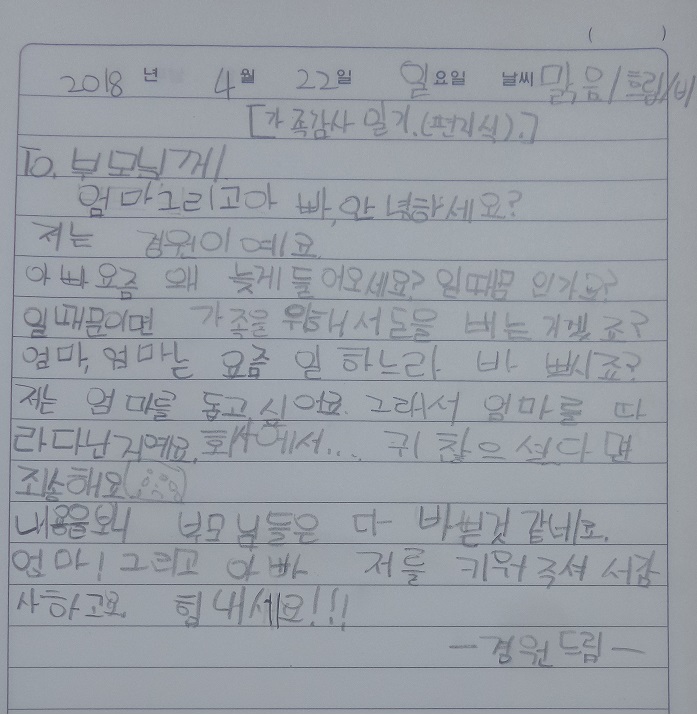 ( )
2018 년 4월 22일 일요일 날씨 맑음/흐림/비
[가족감사 일기.(편지식).]
To. 부모님께
엄마그리고아 빠, 안녕하세요?
저는 경원이예요.
아빠요즘 왜 늦게 들어오세요? 일때문 인가요?
일때문이면 가족을 위해서돈을 버는 거겠죠?
엄마, 엄마는 요즘 일 하느라 바 쁘시죠?
저는 엄마를 돕고 싶어요. 그래서 엄마를 따
라다닌거예요. 회사에서.... 귀 찮으셨다면
죄송해요
내용을보니 부모님들은 다 바쁜것 같네요.
엄마! 그리고 아빠 저를 키워주셔서감
사하고요. 힘내세요!!!
-경원드림-